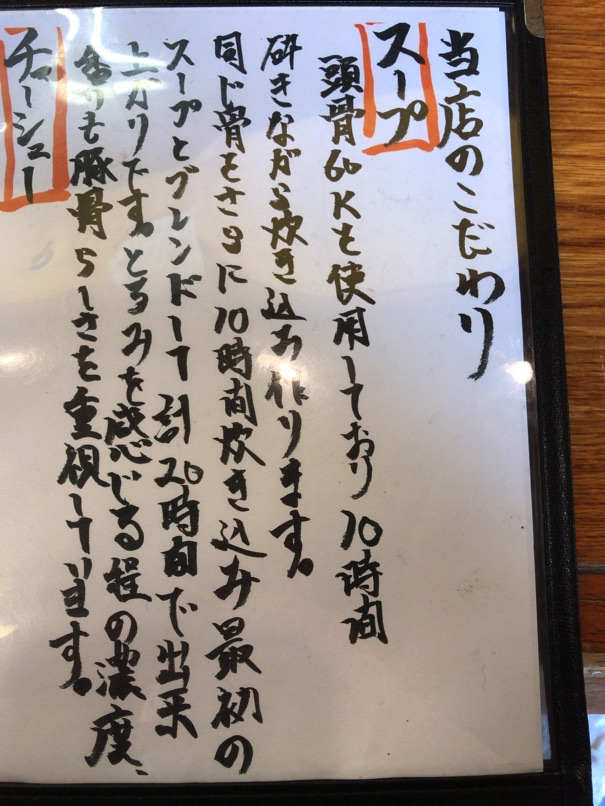 当店のこだわり
スープ
頭骨60Kを使用しており10時間
砕きながら炊き込み作ります。
同じ骨をさらに10時間炊き込み最初の
スープとブレンドして計20時間で出来
上がりです。とろみを感じる程の濃度、
舎りも豚骨らしさを重視しています。
チャーシュー